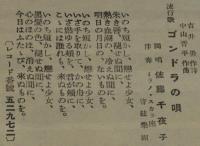 吉井勇作詩
中山晋平作曲
流行歌 ゴンドラの唄
独唱 佐藤千夜子
伴奏
いのち短かし、戀せよ少女、
朱き唇、褪せぬ間に、
熱き血潮の冷えぬ間に、
明日の月日のないものを。
いのち短かし、戀せよ少女、
いざ手をとりて
いざ燃ゆる頬を
こゝには誰れも
いのち短かし、戀せよ少女、
黒髪の色、褪せぬ間に、
心のほのほ消えぬ間に、
今日はふたゝび、來ぬものを。
(レコード番號 五二九七二)